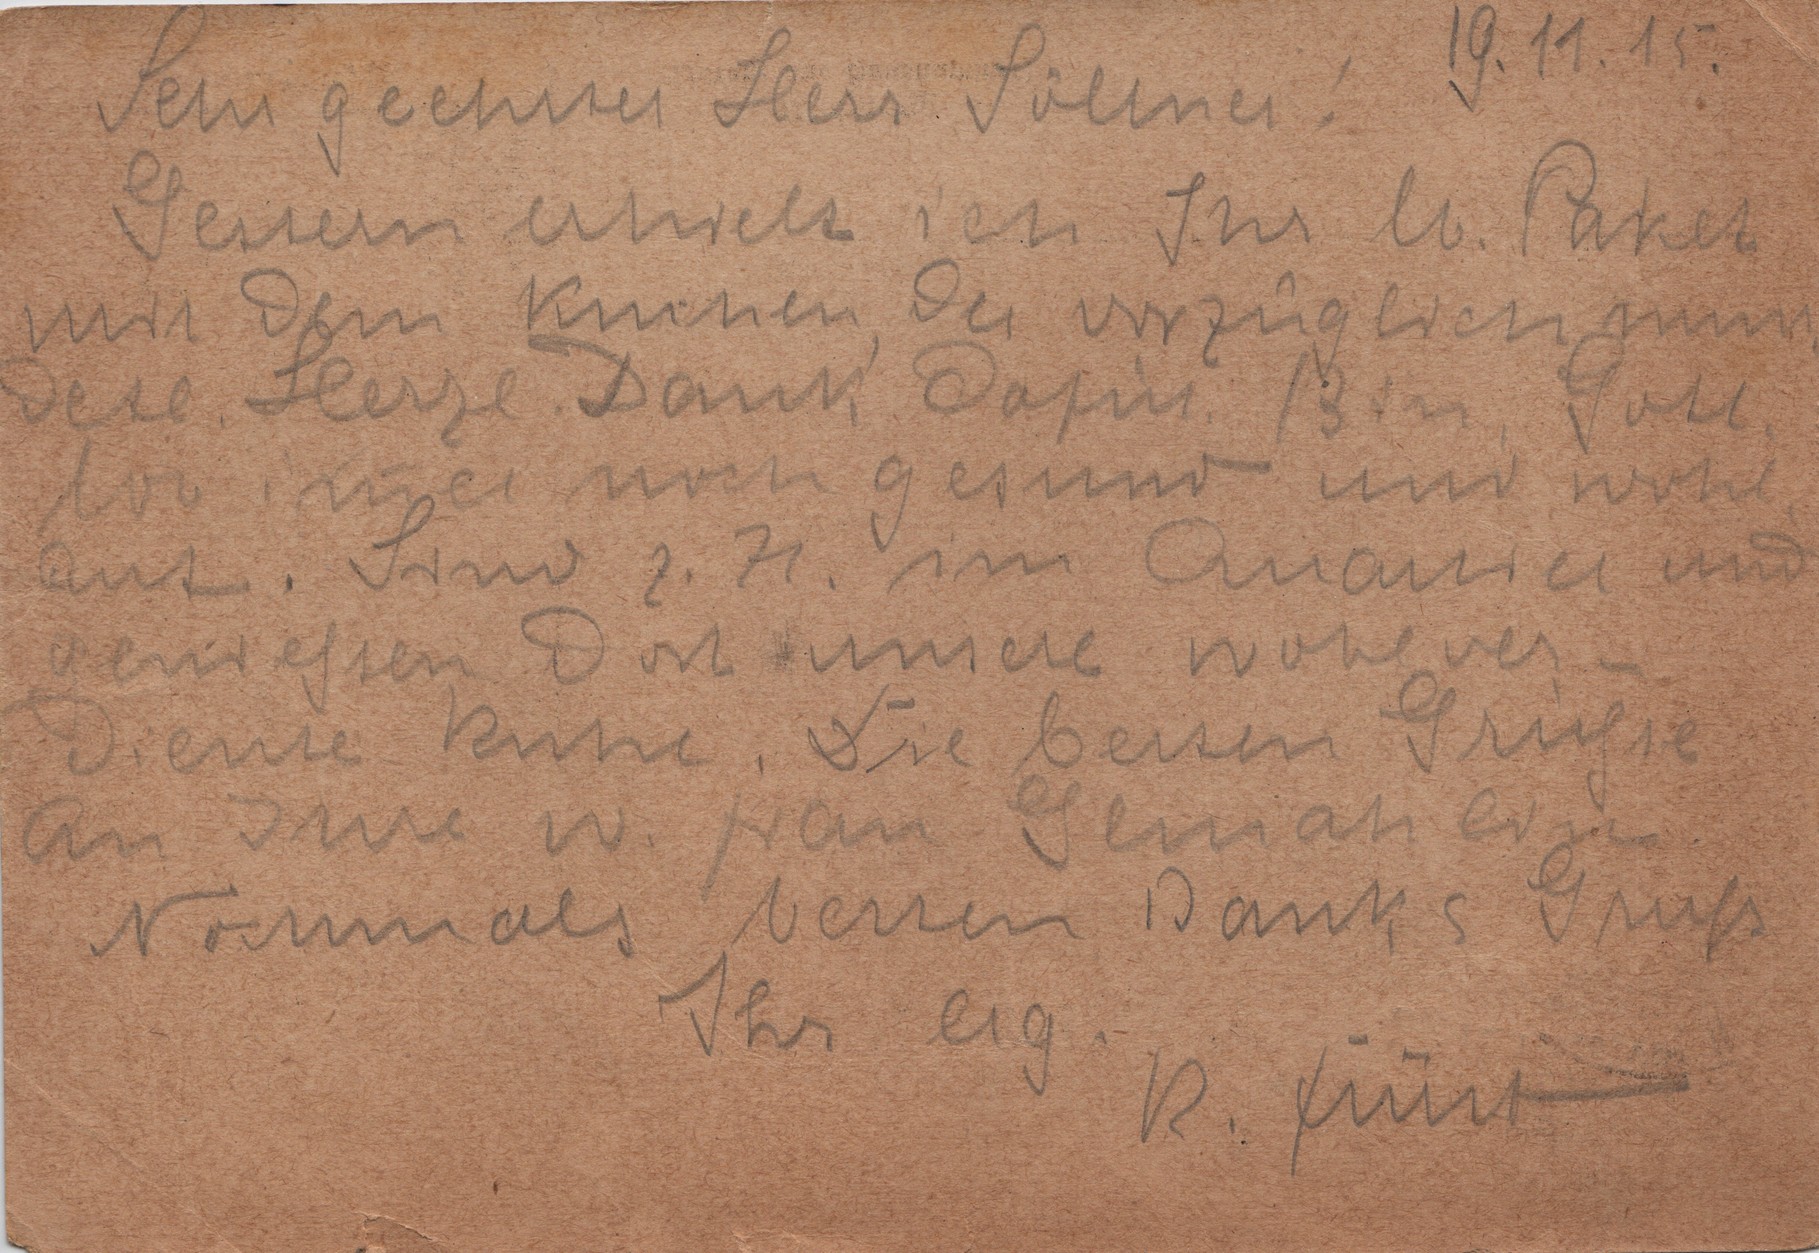 19. 11. 15.
Sehr geehrter Herr Söllner!
Gestern erhielt ich Ihr lb. Paket
mit dem Kuchen, der vorzüglich mun,
dete. Herzl. Dank dafür. Bin, Gott,
lob im̄er noch gesund und wohl,
auf. Sind z. Zt. im Quartier und
genießen dort unsere wohlver-
diente Ruhe. Die besten Grüße
an Ihre w. Frau Gemahlin
Nochmals besten Dank & Gruß
Ihr erg.
R. Fürst